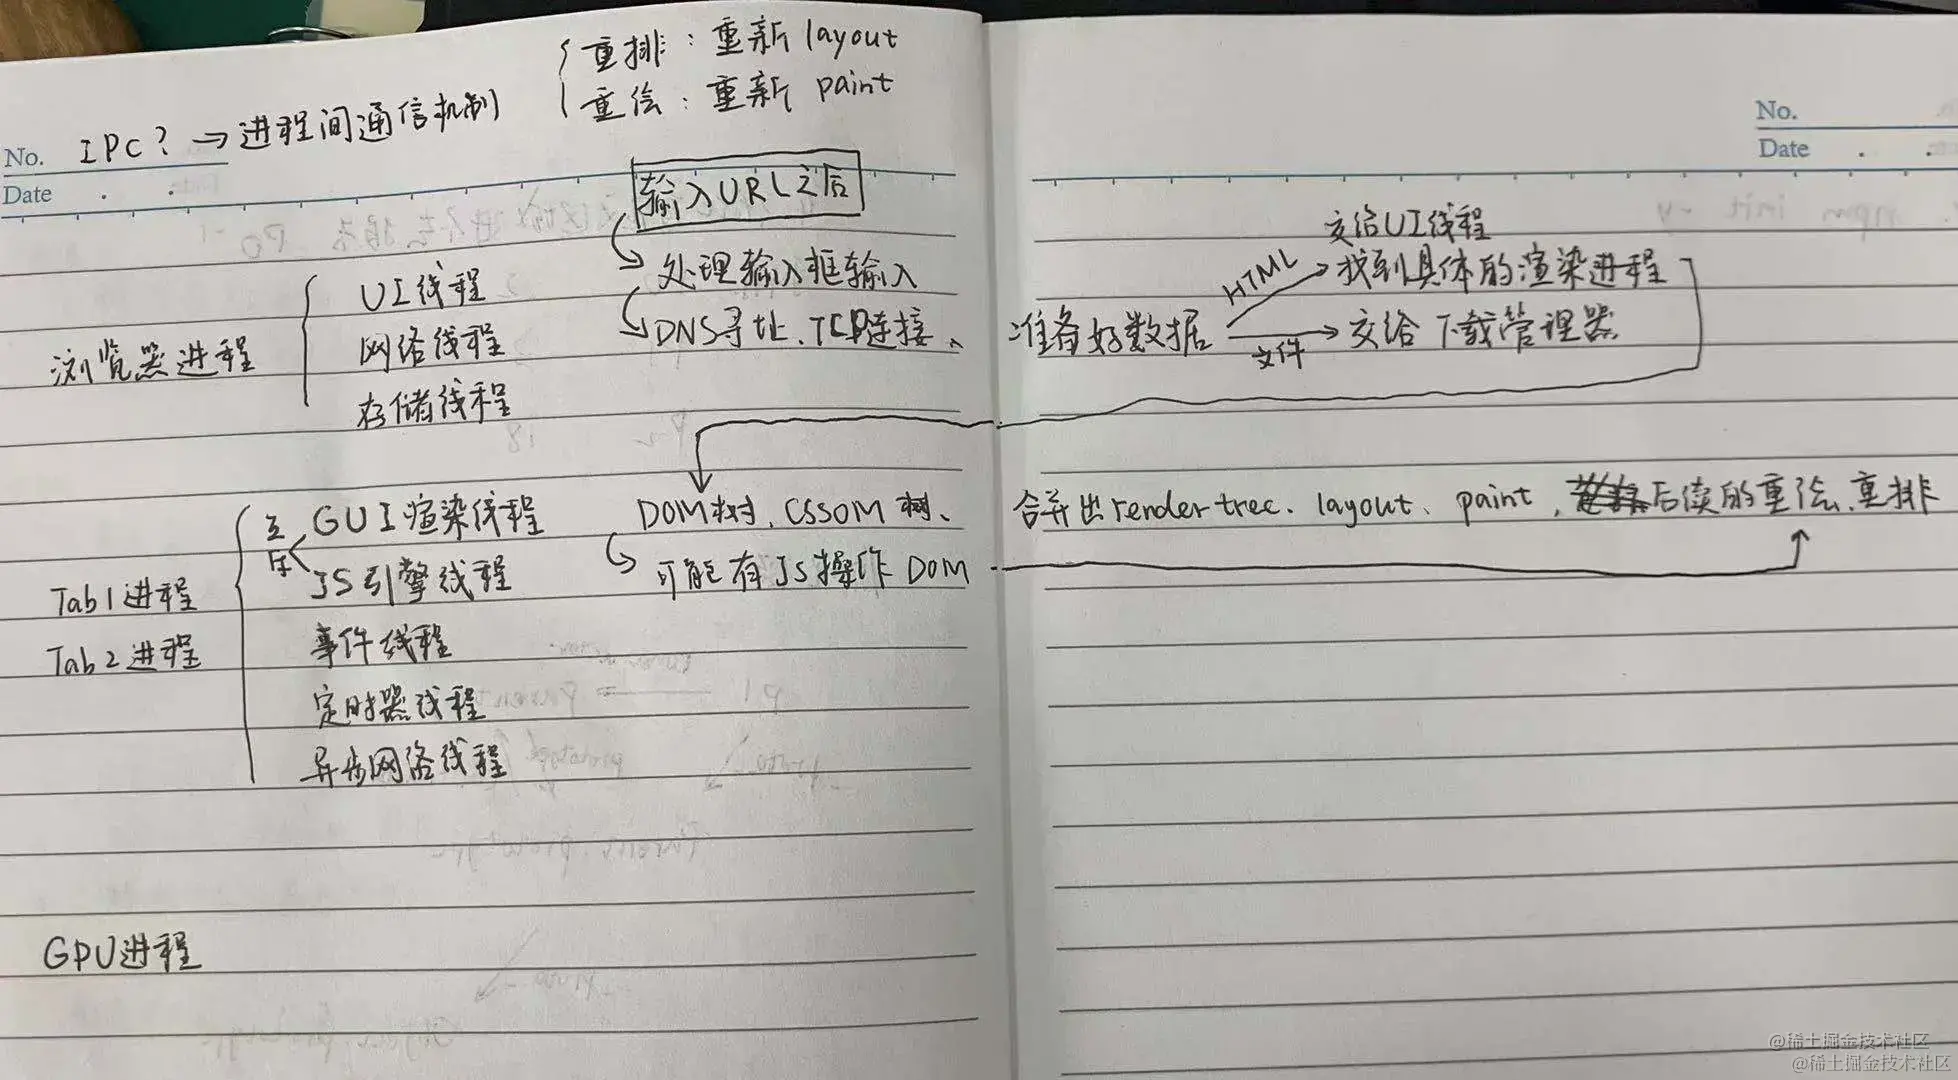 重排：重新layout
重绘：重新 paint
IPC？→进程间通信机制
No.
Date
输入URL之后
浏览器进程
UI线程
网络线程
存储线程
处理输入框输入
DNS寻址、TCP连接、
No.
Date
准备好数据
HTML
交给UI线程
找到具体的渲染进程
文件
交给下载管理器
Tab1进程
Tab2进程
互斥
GUI渲染线程
JS引擎线程
事件线程
定时器线程
异步网络线程
DOM树、CSSOM树、
可能有JS操作DOM
合并出render tree、layout、paint，后续的重绘、重排
GPU进程
@稀土掘金技术社区
@稀土掘金技术社区